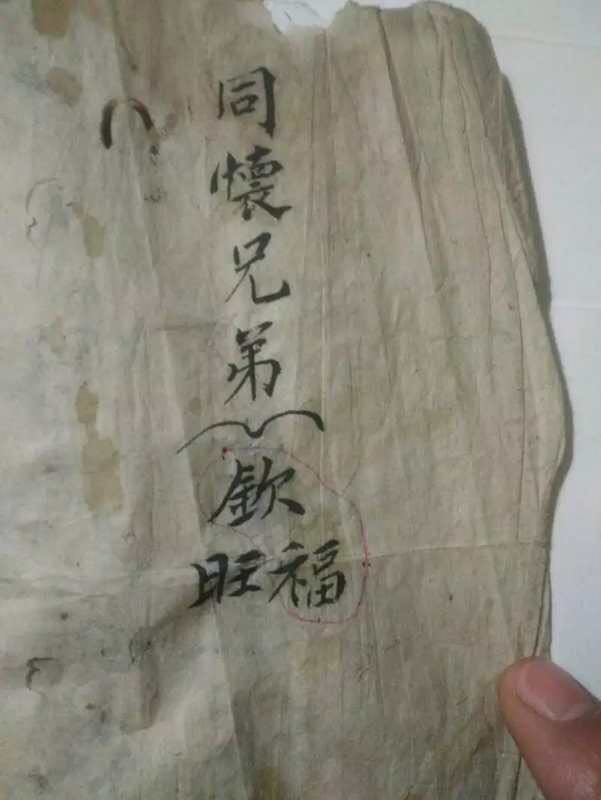 同懷兄弟
欽
福旺